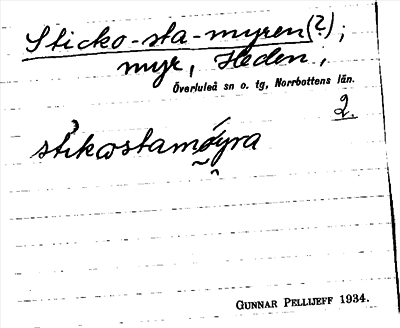 Sticko-sta-myren(?);
myr, Heden,
Överluleå sn o. tg, Norrbottens län.
2.
stikostamøyra
GUNNAR PELLIJEFF 1934.